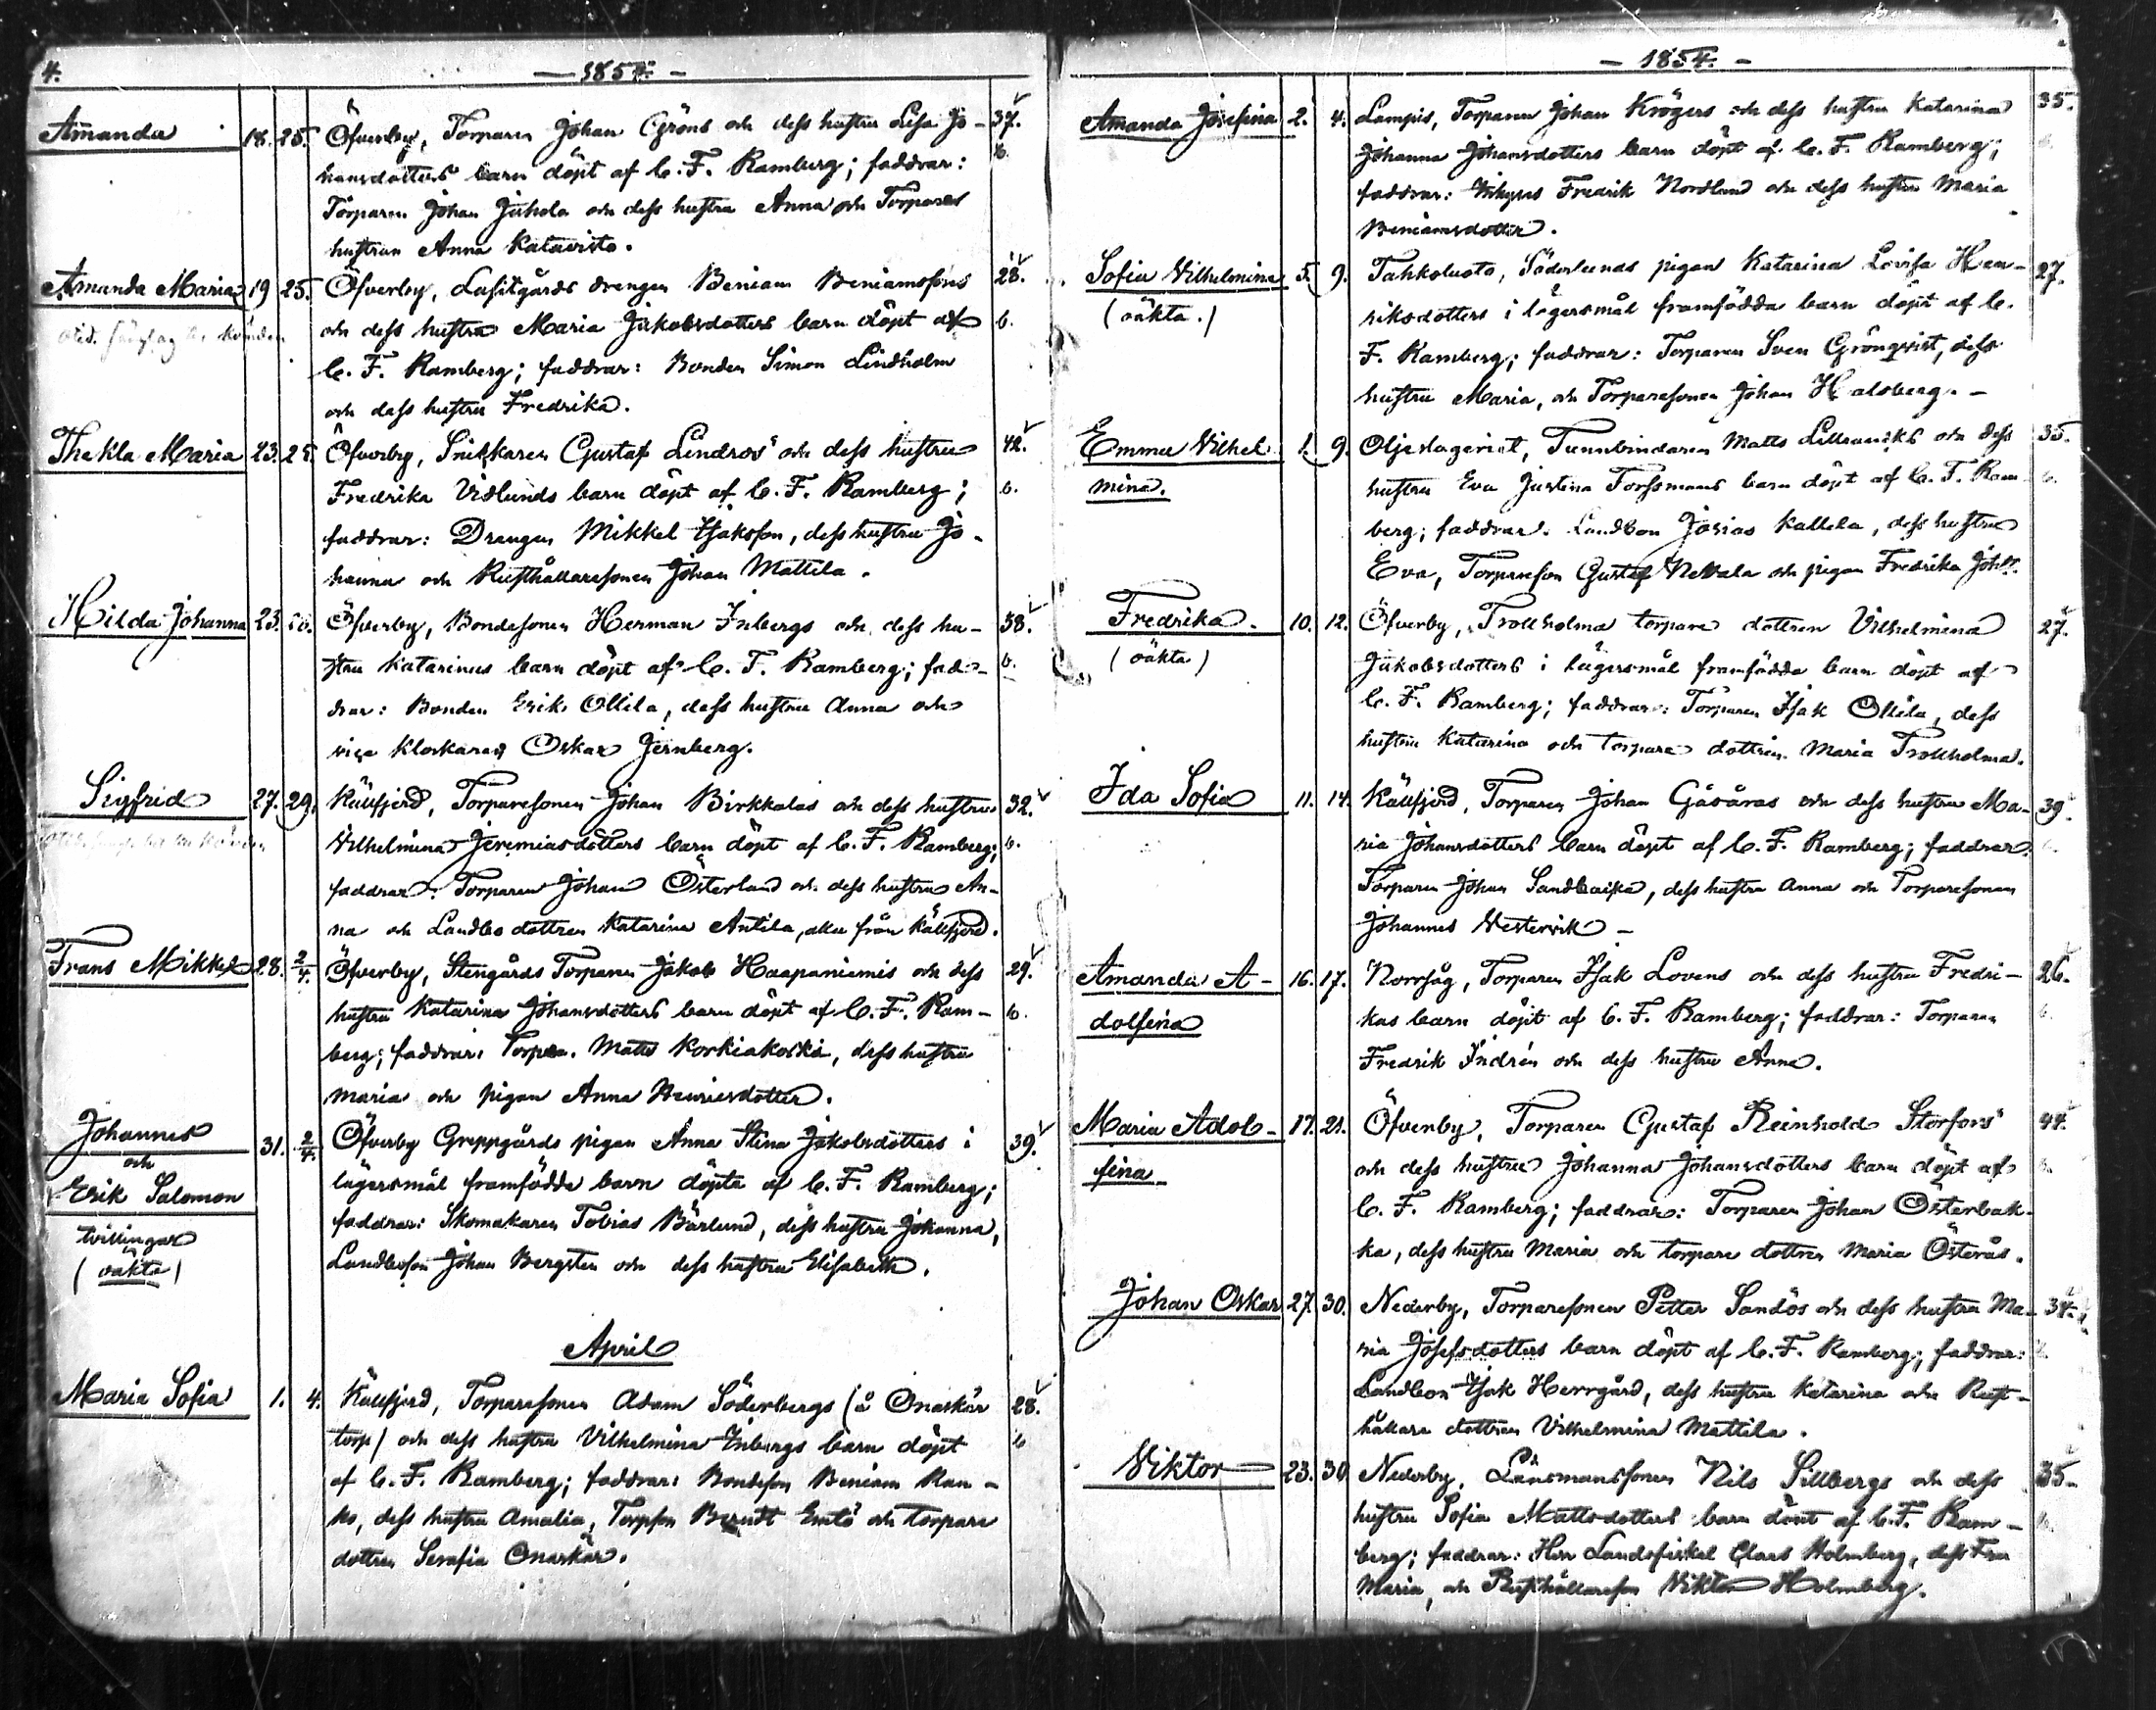 4.
— 1854. —
Amanda 18. 25. Öfverby, Torparen Johan Gröns och dess hustru Lisa Jo- 37.
hansdotters barn döpt af C. F. Ramberg; faddrar: b.
Torparen Johan Juhola och dess hustru Anna och Torpares
hustrun Anna Katavisto.
Amanda Maria 19 25. Öfverby, Lassgårds drengen Beniam Beniamssons 28.
och dess hustru Maria Jakobsdotters barn döpt af b.
C. F. Ramberg; faddrar: Bonden Simon Lindholm
och dess hustru Fredrika.
Thekla Maria 23. 25. Öfverby, Snickaren Gustaf Lindros och dess hustru 42.
Fredrika Vidlunds barn döpt af C. F. Ramberg; b.
faddrar: Drengen Mikkel Isaksson, dess hustru Jo-
hanna och Rusthållaresonen Johan Mattila.
Hilda Johanna 23. Öfverby, Bondesonen Herman Inbergs och dess hu- 38.
stru Katarinas barn döpt af C. F. Ramberg; fad- b.
drar: Bonden Erik Ollila, dess hustru Anna och
vice klockaren Oskar Jernberg.
Sigfrid 27. 29. Källfjerd, Torparesonen Johan Birkkalas och dess hustru 32.
Vilhelmina Jeremiasdotters barn döpt af C. F. Ramberg; b.
faddrar: Torparen Johan Österlund och dess hustru An-
na och Landbo dottren Katarina Antila, alla från Källfjerd.
Frans Mikkel 28. 2/4. Öfverby, Stengårds Torparen Jakob Haapaniemis och dess 29.
hustru Katarina Johansdotters barn döpt af C. F. Ram- b.
berg; faddrar: Torpen. Matts Korkiakoski, dess hustru
Maria och pigan Anna Henricsdotter.
Johannes 31. 2/4. Öfverby Greppgårds pigan Anna Stina Jakobsdotters i 39.
och
Erik Salomon lägersmål framfödde barn döpta af C. F. Ramberg;
tvillingar faddrar: Skomakaren Tobias Bärlund, dess hustru Johanna,
(oäkta) Landboson Johan Bergsten och dess hustru Elisabeth.
April
Maria Sofia 1. 4. Källfjerd, Torparesonen Adam Söderbergs (å Onaskär 28.
torp) och dess hustru Vilhelmina Inbergs barn döpt b
af C. F. Ramberg; faddrar: Bondeson Beniam Ran-
ko, dess hustru Amalia, Torpson Berndt Entö och torpare
dottren Serafia Onaskär.
— 1854. —
Amanda Josefina 2. 4. Lampis, Torparen Johan Krögers och dess hustru Katarina 35.
Johanna Johansdotters barn döpt af C. F. Ramberg; b.
faddrar: Fredrik Nordlund och dess hustru Maria
Beniamsdotter.
Sofia Vilhelmina 5. 9. Tahkoluoto, Söderlunds pigan Katarina Lovisa Hen- 27.
(oäkta.) riksdotters i lägersmål framfödda barn döpt af C.
F. Ramberg; faddrar: Torparen Sven Grönqvist, dess
hustru Maria, och Torparesonen Johan Halsberg. -
Emma Vilhel- 1. 9. Oljeslageriet, Tunnbindaren Matts och dess 35.
mina. hustru Eva Justina Forssmans barn döpt af C. F. Ram- b.
berg; faddrar: Landbon Josias Kallela, dess hustru
Eva, Torpareson Gustaf Nettala och pigan Fredrika Johsr.
Fredrika. 10. 12. Öfverby, Trollholma torpare dottren Vilhelmina 27.
(oäkta) Jakobsdotters i lägersmål framfödda barn döpt af
C. F. Ramberg; faddrar: Torparen Isak Ollila, dess
hustru Katarina och torpare dottren Maria Trollholma.
Ida Sofia 11. 14. Källfjerd, Torparen Johan Gåsåras och dess hustru Ma- 39.
ria Johansdotters barn döpt af C. F. Ramberg; faddrar:
Torparen Johan Sandbacka, dess hustru Anna och Torparesonen
Johannes Westervik -
Amanda A- 16. 17. Norrfåg, Torparen Isak Lovens och dess hustru Fredri- 26.
dolfina kas barn döpt af C. F. Ramberg; faddrar: Torparen b.
Fredrik Indrén och dess hustru Anna.
Maria Adol- 17. 21. Öfverby, Torparen Gustaf Reinhold Storfors 44.
fina och dess hustru Johanna Johansdotters barn döpt af b.
C. F. Ramberg; faddrar: Torparen Johan Österbak-
ka, dess hustru Maria och torpare dottren Maria Österås.
Johan Oskar 27. 30. Nederby, Torparesonen Petter Sandös och dess hustru Ma- 34.
ria Josefsdotters barn döpt af C. F. Ramberg; faddrar:
Landbon Isak Herrgård, dess hustru Katarina och Rust-
hållare dottren Vilhelmina Mattila.
Viktor 23. 30 Nederby, Länsmanssonen Nils Sillbergs och dess 35.
hustru Sofia Mattsdotters barn döpt af C. F. Ram- b.
berg; faddrar: Herr Landsfiskal Claes Holmberg, dess Fru
Maria, och Rusthållareson Viktor Holmberg.